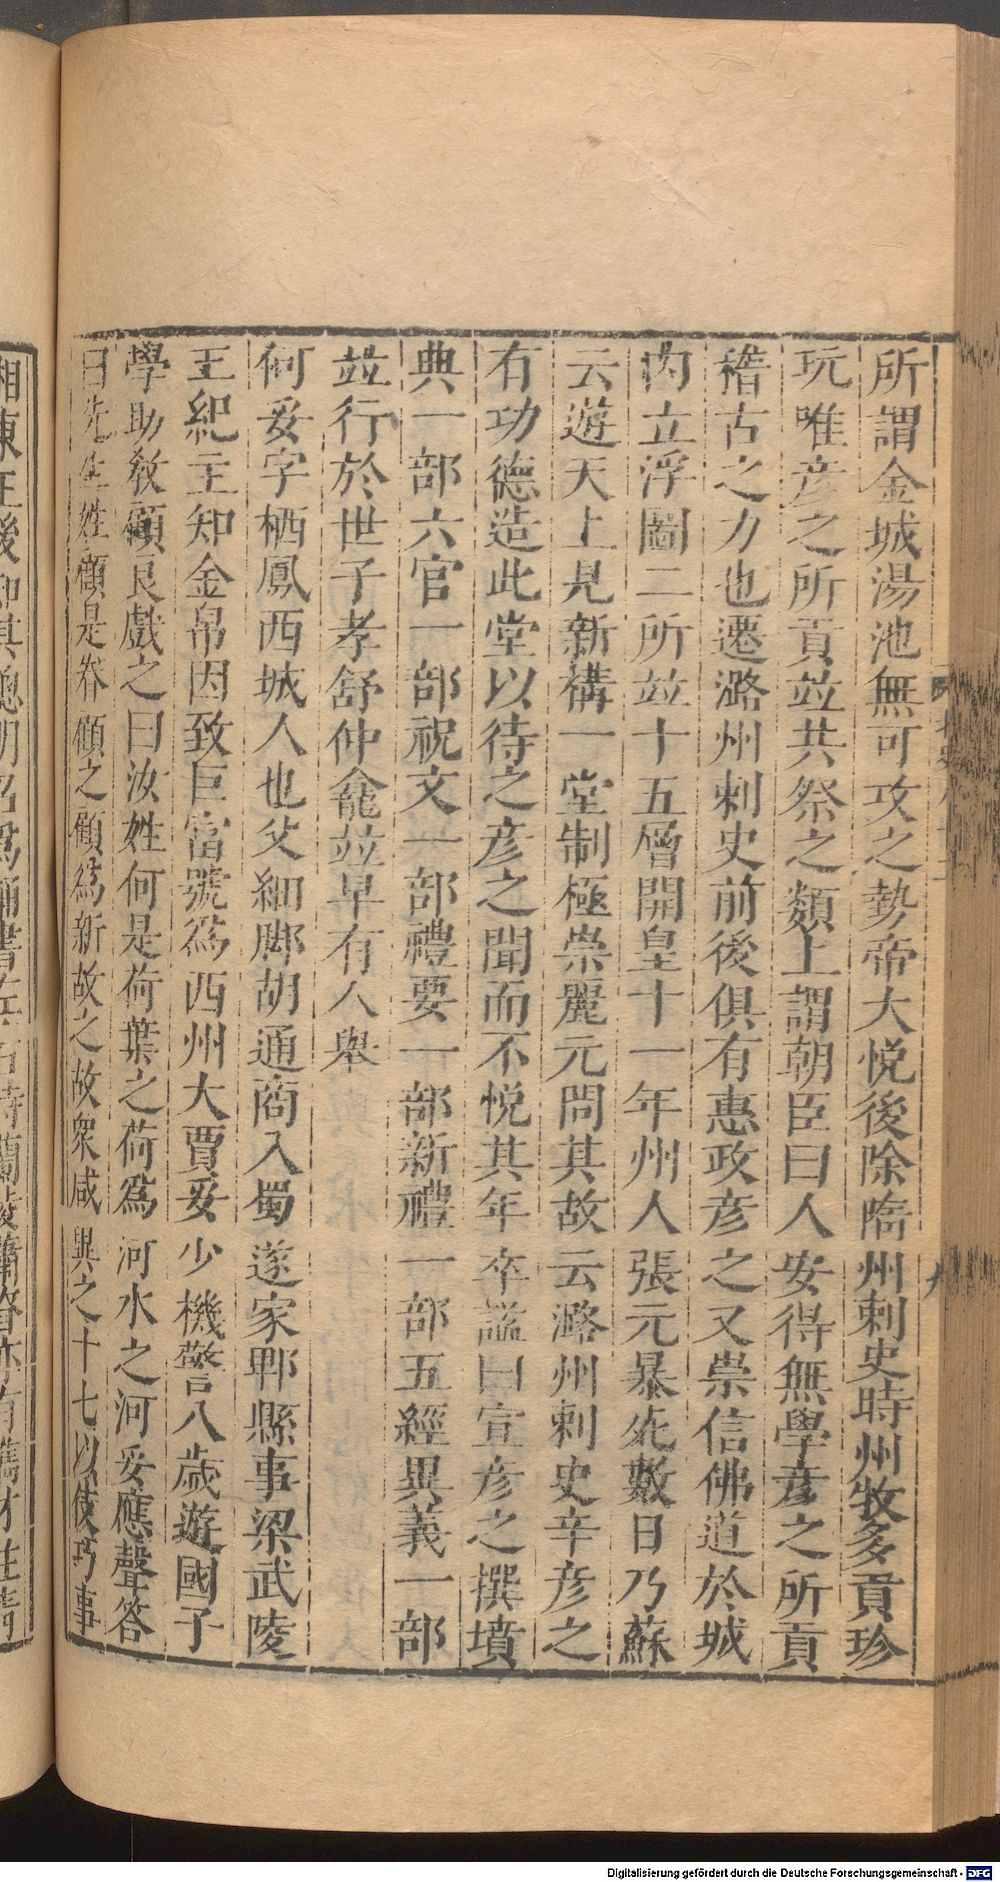 所謂金城湯池無可攻之勢帝大悅後除隋州刺史時州牧多貢珍
玩唯彦之所貢竝共祭之類上謂朝臣曰人安得無學彦之所貢
稽古之力也遷潞州刺史前後俱有惠政彦之又崇信佛道於城
内立浮圖二所竝十五層開皇十一年州人張元暴死數日乃蘇
云遊天上見新構一堂制極崇麗元問其故云潞州刺史辛彦之
有功德造此堂以待之彦之聞而不悅其年卒謚曰宣彦之撰墳
典一部六官一部祝文一部禮要一部新禮一部五經異義一部
竝行於世子孝舒仲龕竝早有人舉
何妥字栖鳳西城人也父細脚胡通商入蜀遂家郫縣事梁武陵
王紀主知金帛因致巨富號爲西州大賈妥少機警八歲遊國子
學助敎顧良戲之曰汝姓何是荷葉之荷爲河水之河妥應聲答
曰先生姓顧是眷顧之顧爲新故之故衆咸異之十七以伎巧事
湘東王後知其聰明召爲誦書左右時蘭陵蕭眘亦有儁才住靑
Digitalisierung gefördert durch die Deutsche Forschungsgemeinschaft - DFG